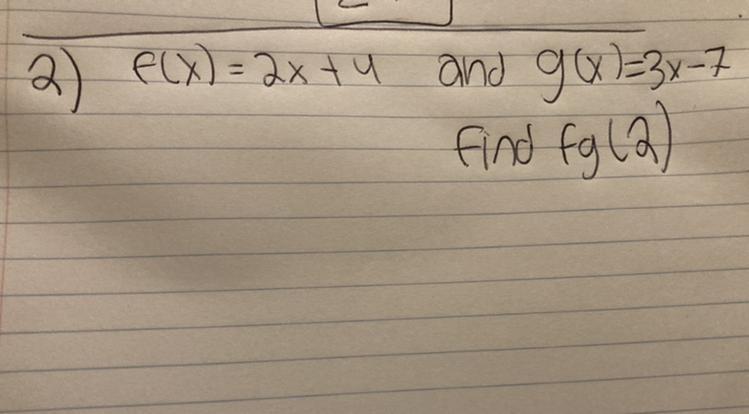 2) f(x) = 2x + 4 and g(x)=3x-7
find fg(2)